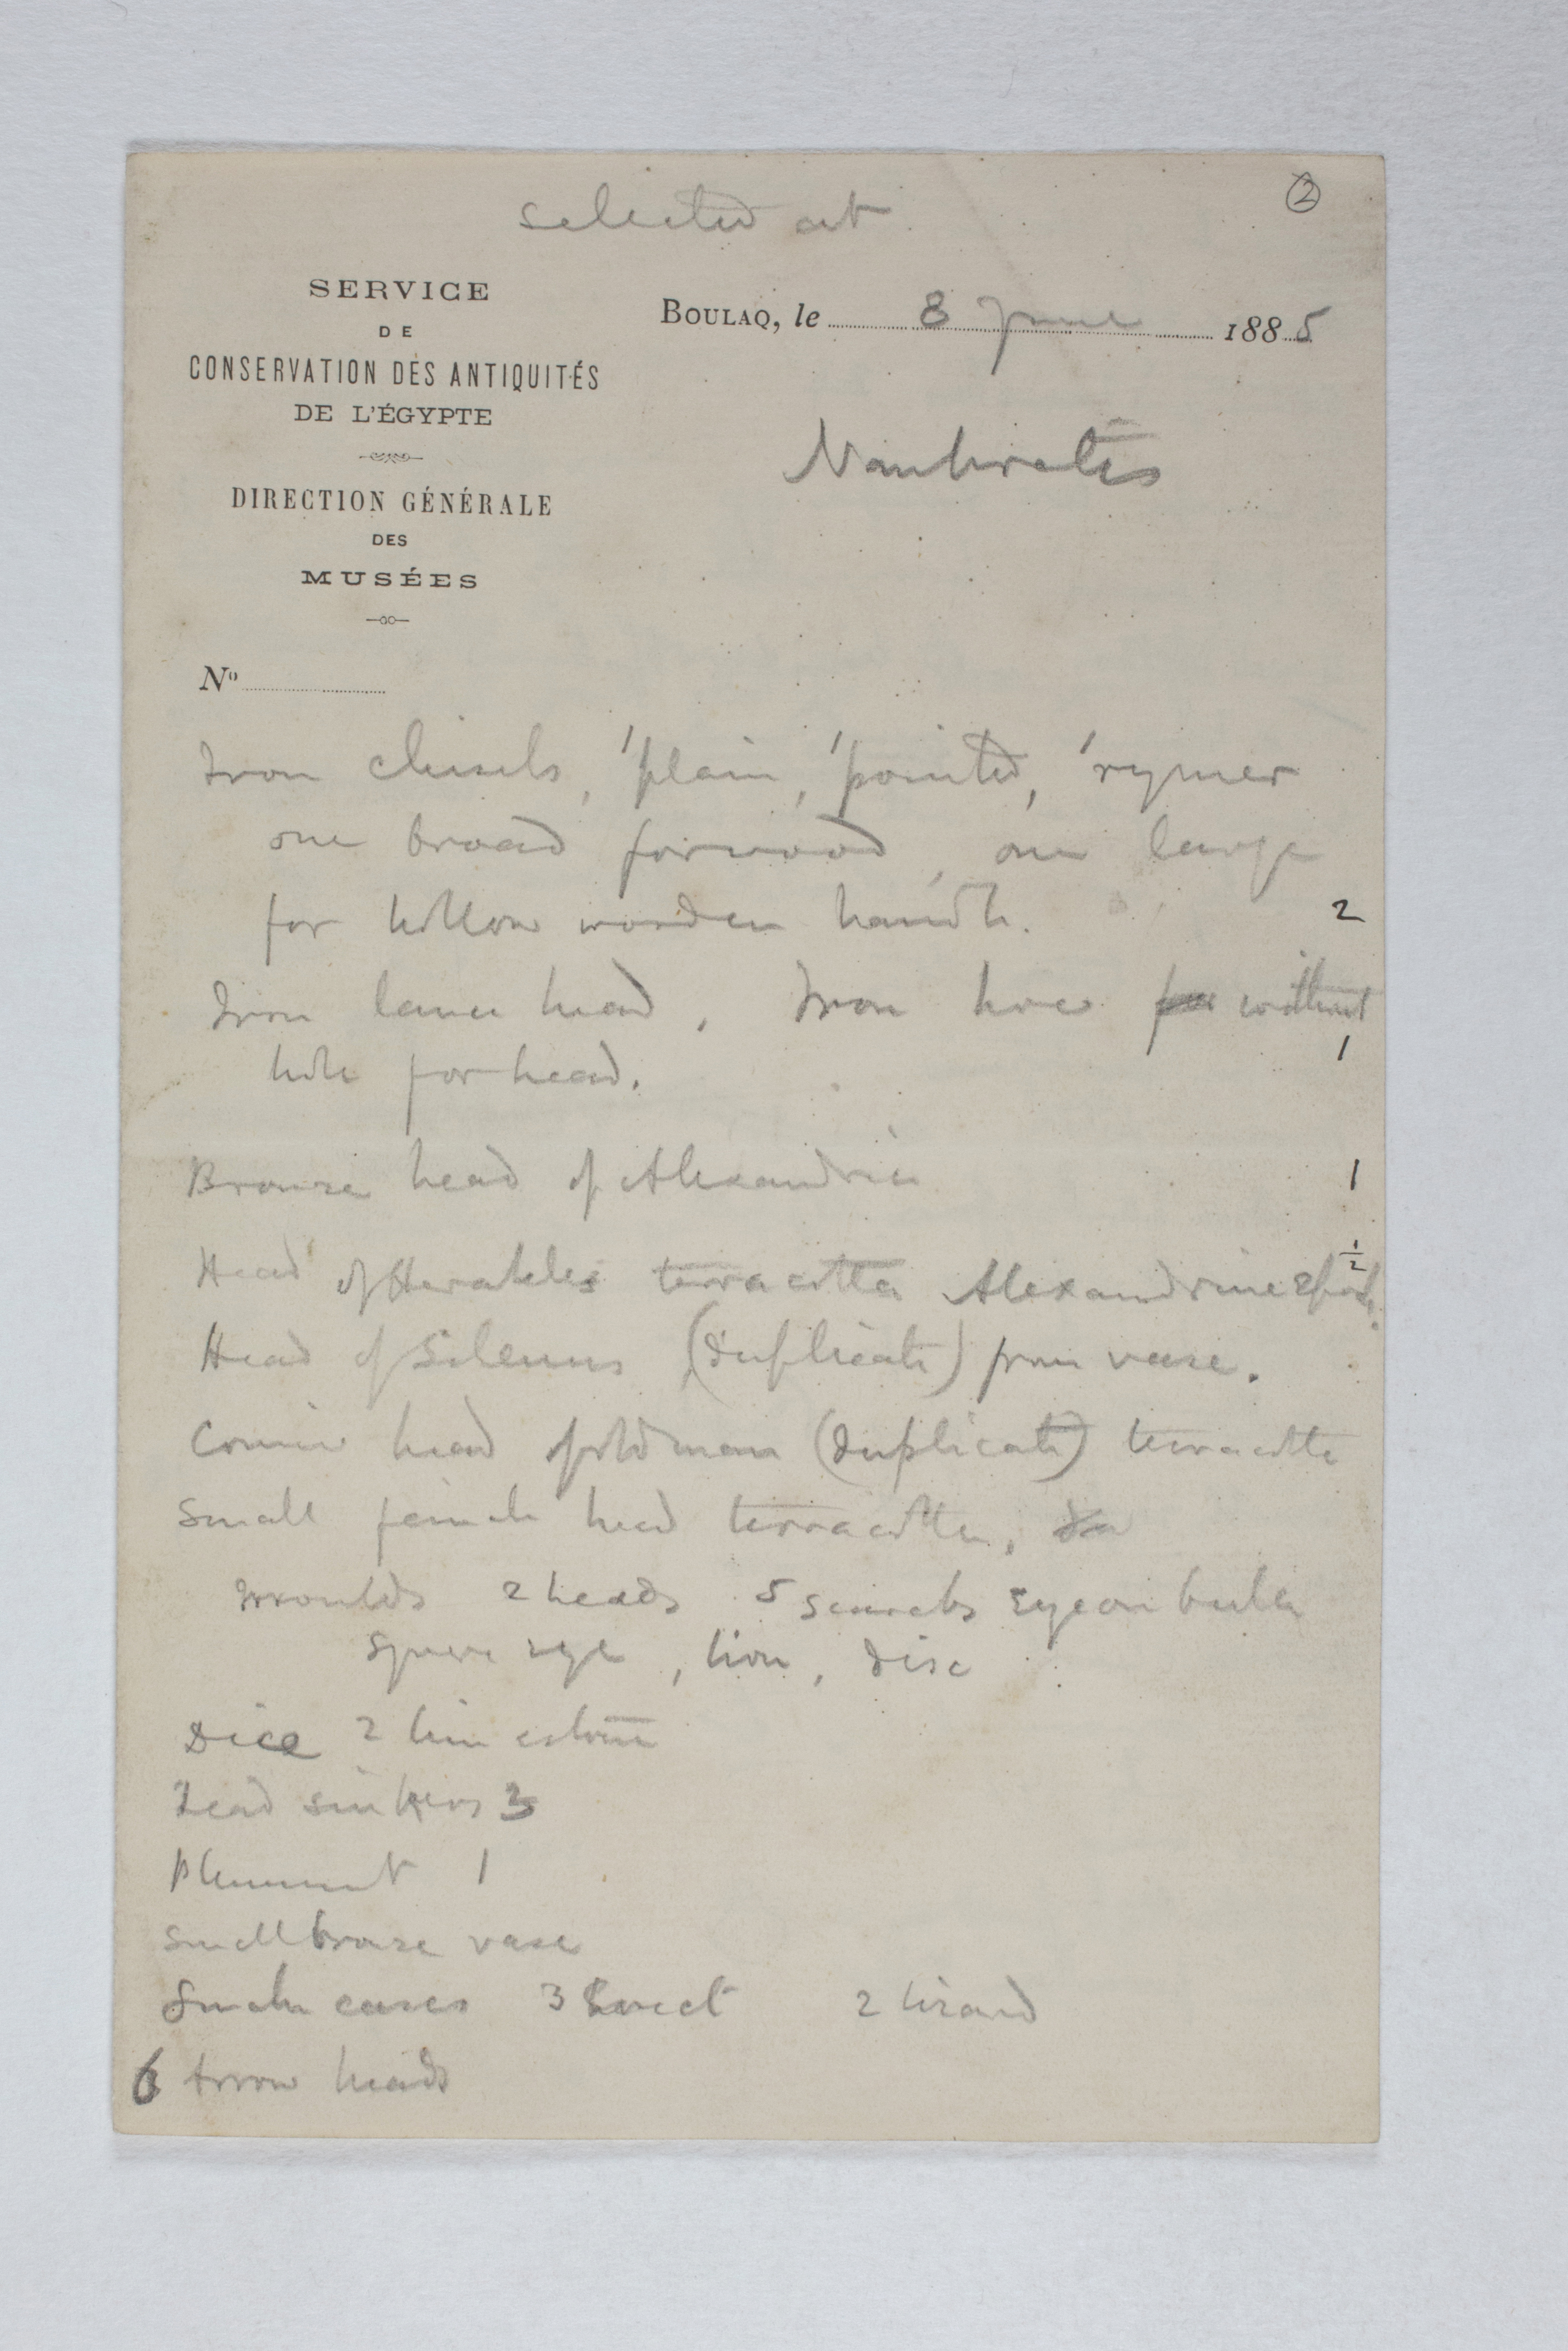 selected at
②
SERVICE
DE
CONSERVATION DES ANTIQUITÉS
DE L'ÉGYPTE
DIRECTION GÉNÉRALE
DES
MUSÉES
Boulaq, le 8 June 1885
Naukratis
Nº
Iron chisels, 1 plain, 1 pointed, 1 rymer
one broad for wood, one large
for hollow wooden handle. 2
Iron lance head, Iron hoe for without
hole for head. 1
Bronze head of Alexandria 1
Head of Herakles terracotta Alexandrine 1/2
Head of Silenus (duplicate) from vase.
Comic head of old man (duplicate) terracotta
Small female head terracotta, do
Moulds 2 heads 5 scarabs Eye on
Square eye, lion, disc
Dice 2 limestone
Lead sinkers 3
Plummet 1
Small bronze vase
Snake cases 3 2 lizard
6 Arrow heads